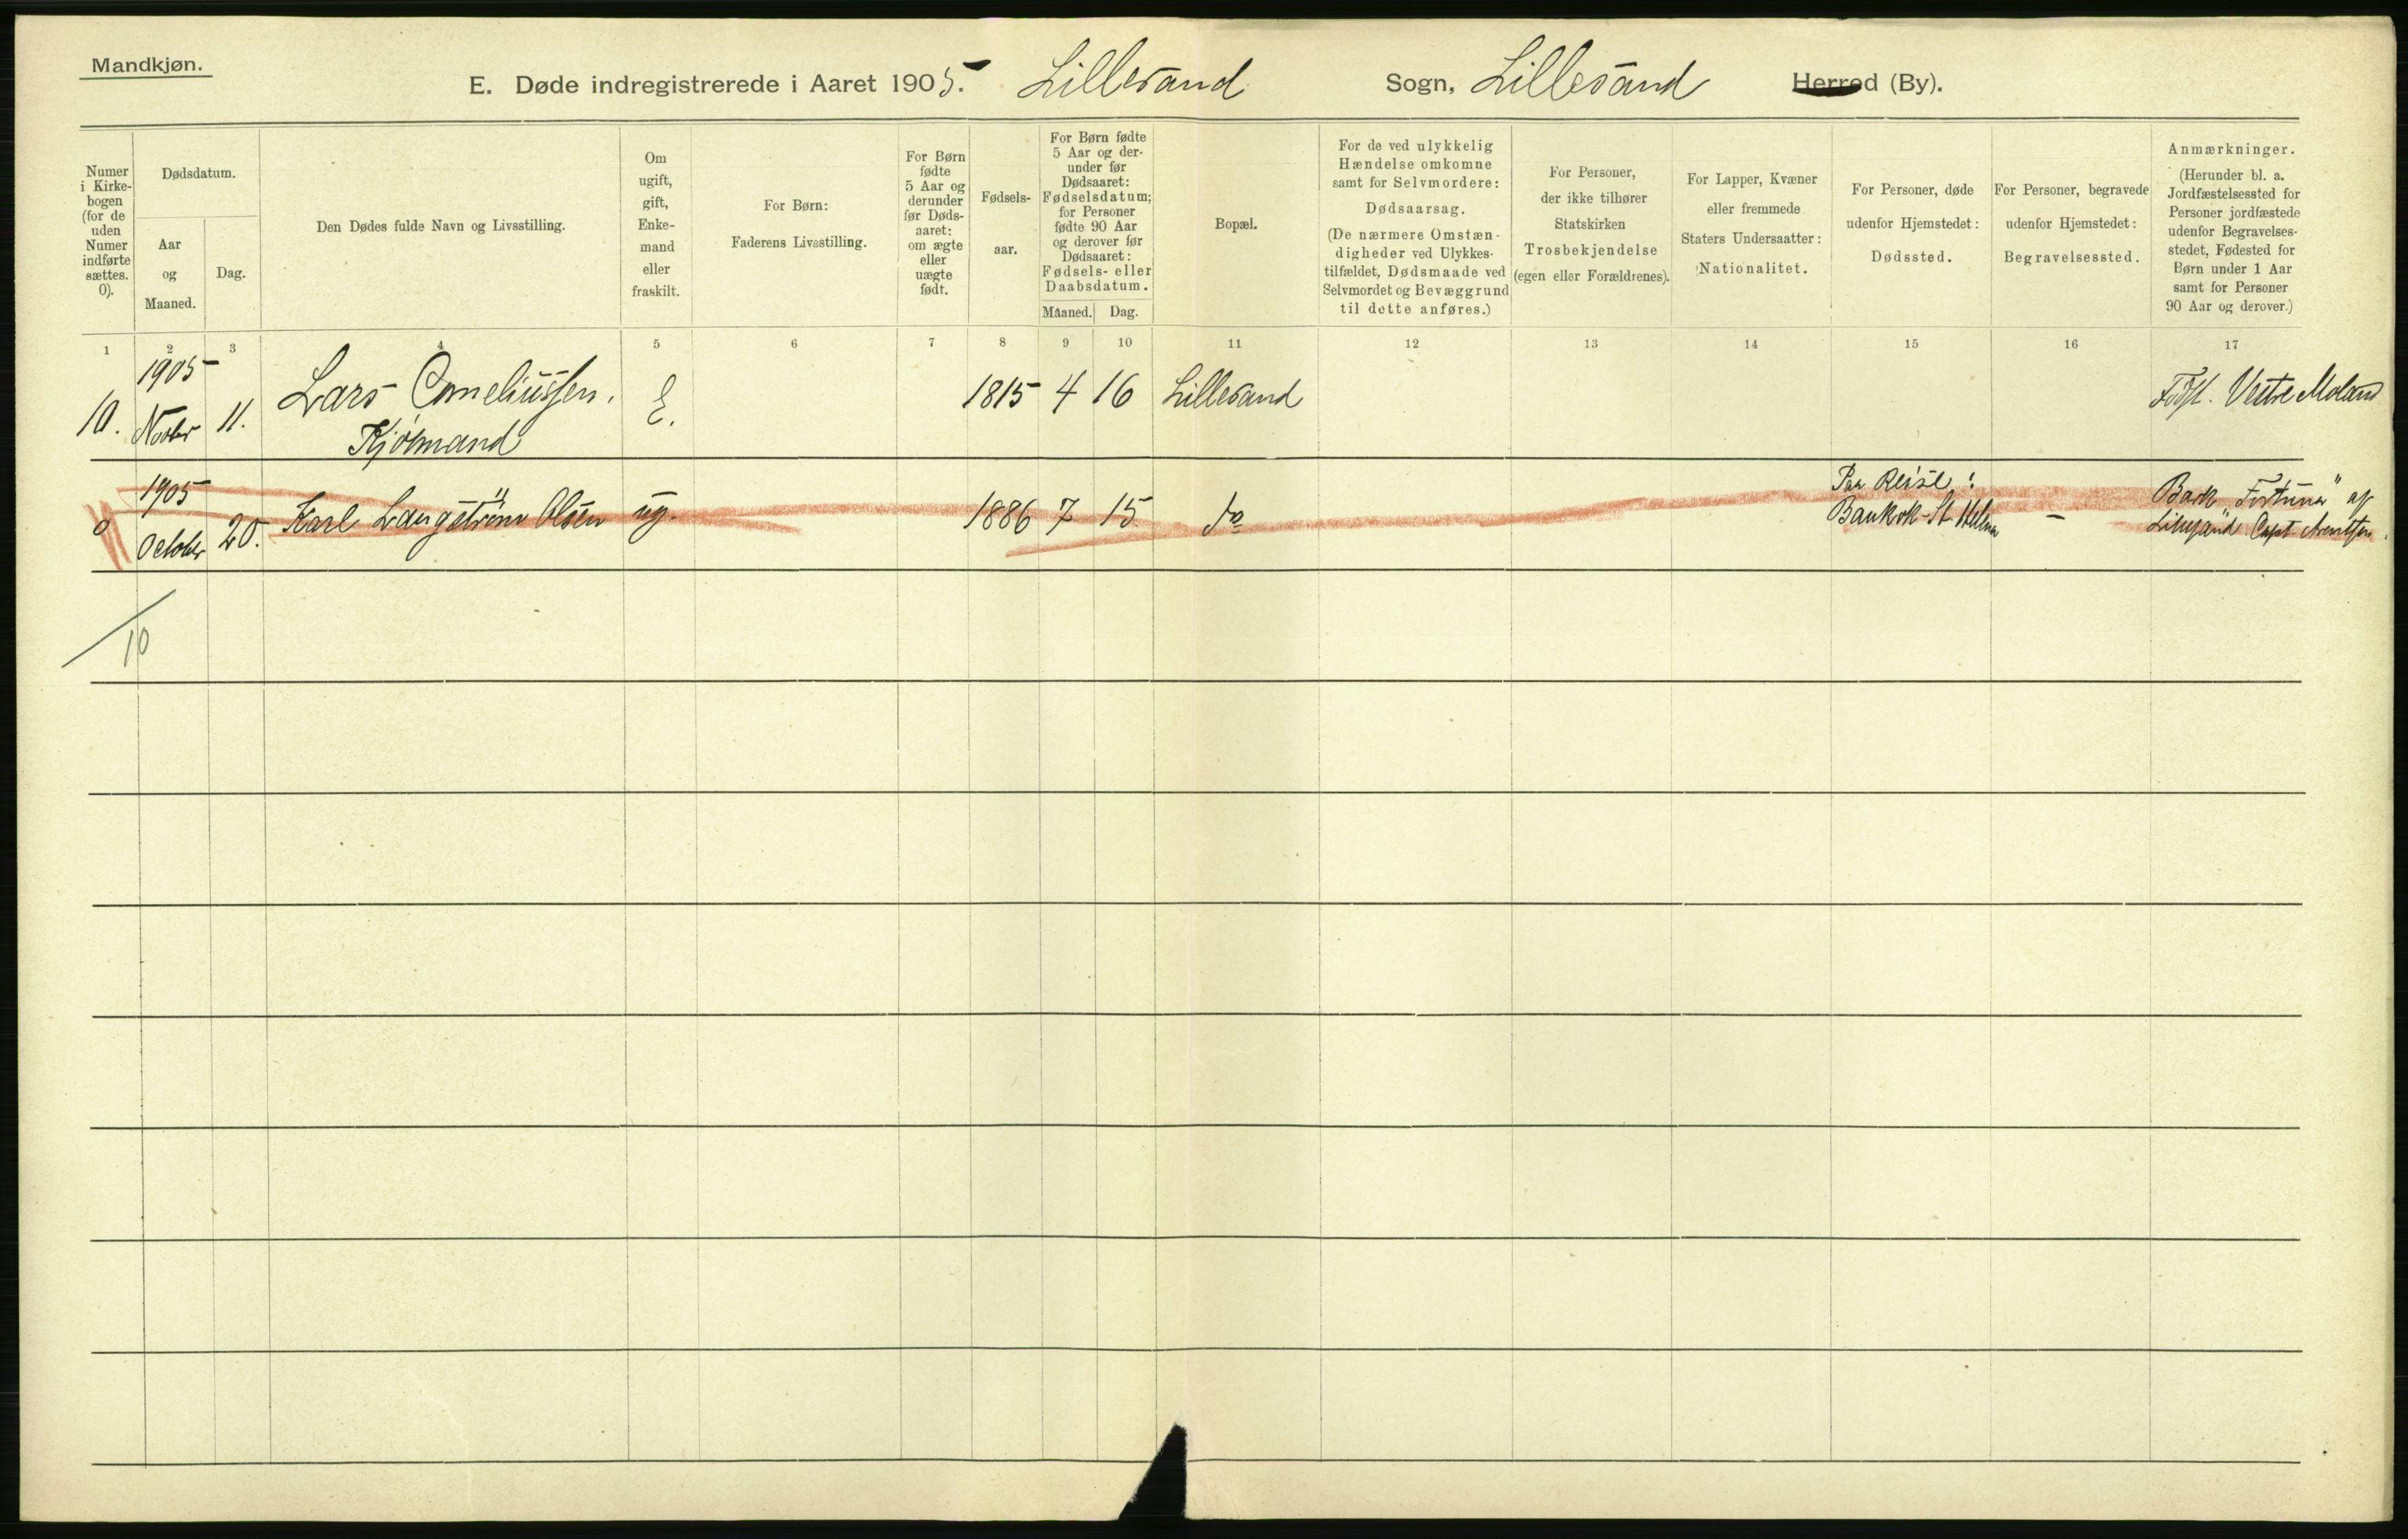 Mandkjøn.
E. Døde indregistrerede i Aaret 1905. Lillesand Sogn, Lillesand Herred (By).
Numer i Kirke-bogen (for de uden Numer indførte sættes. 0).
Dødsdatum.
Aar og Maaned.
Dag.
Den Dødes fulde Navn og Livsstilling.
Om ugift, gift, Enke-mand eller fraskilt.
For Børn: Faderens Livsstilling.
For Børn fødte 5 Aar og derunder før Døds-aaret: om ægte eller uægte født.
Fødsels-aar.
For Børn fødte 5 Aar og der-under før Dødsaaret: Fødselsdatum; for Personer fødte 90 Aar og derover før Dødsaaret: Fødsels- eller Daabsdatum.
Maaned. Dag.
Bopæl.
For de ved ulykkelig Hændelse omkomne samt for Selvmordere: Dødsaarsag. (De nærmere Omstæn-digheder ved Ulykkes-tilfældet, Dødsmaade ved Selvmordet og Bevæggrund til dette anføres.)
For Personer, der ikke tilhører Statskirken Trosbekjendelse (egen eller Forældrenes).
For Lapper, Kvæner eller fremmede Staters Undersaatter: Nationalitet.
For Personer, døde udenfor Hjemstedet: Dødssted.
For Personer, begravede udenfor Hjemstedet: Begravelsessted.
Anmærkninger. (Herunder bl. a. Jordfæstelsessted for Personer jordfæstede udenfor Begravelses-stedet, Fødested for Børn under 1 Aar samt for Personer 90 Aar og derover.)
1 2 3 4 5 6 7 8 9 10 11 12 13 14 15 16 17
1905
10. Novbr 11. Lars Corneliussen. E. 1815 4 16 Lillesand Fødst. Vestre Moland
Kjøbmand
1905 Paa Reise: Bark "Fortuna" af
0 October 20. Karl Langstrøm Olsen ug. 1886 7 15 do Bankok-St Helena - Lillesand Capt Arentsen.
10